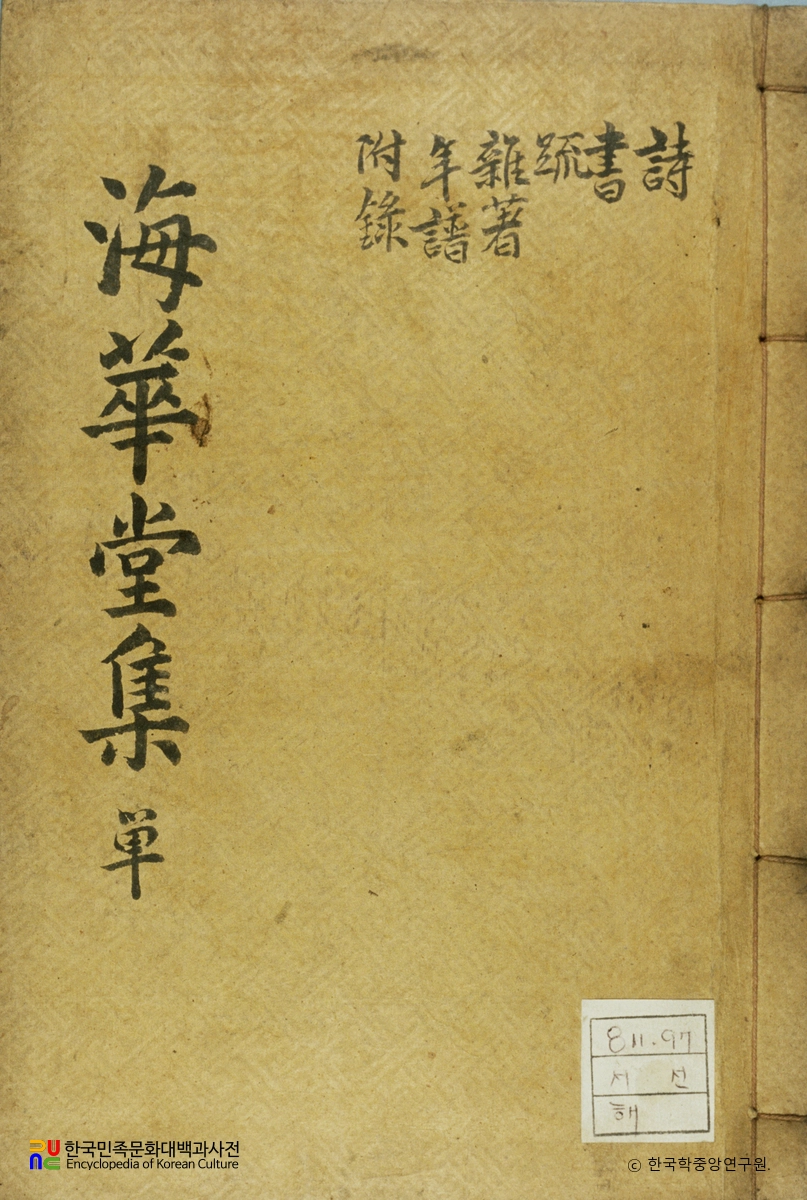 詩
書
疏
雜著
年譜
附錄
海華堂集 単
811.97
서 선
해
한국민족문화대백과사전
Encyclopedia of Korean Culture
ⓒ 한국학중앙연구원.